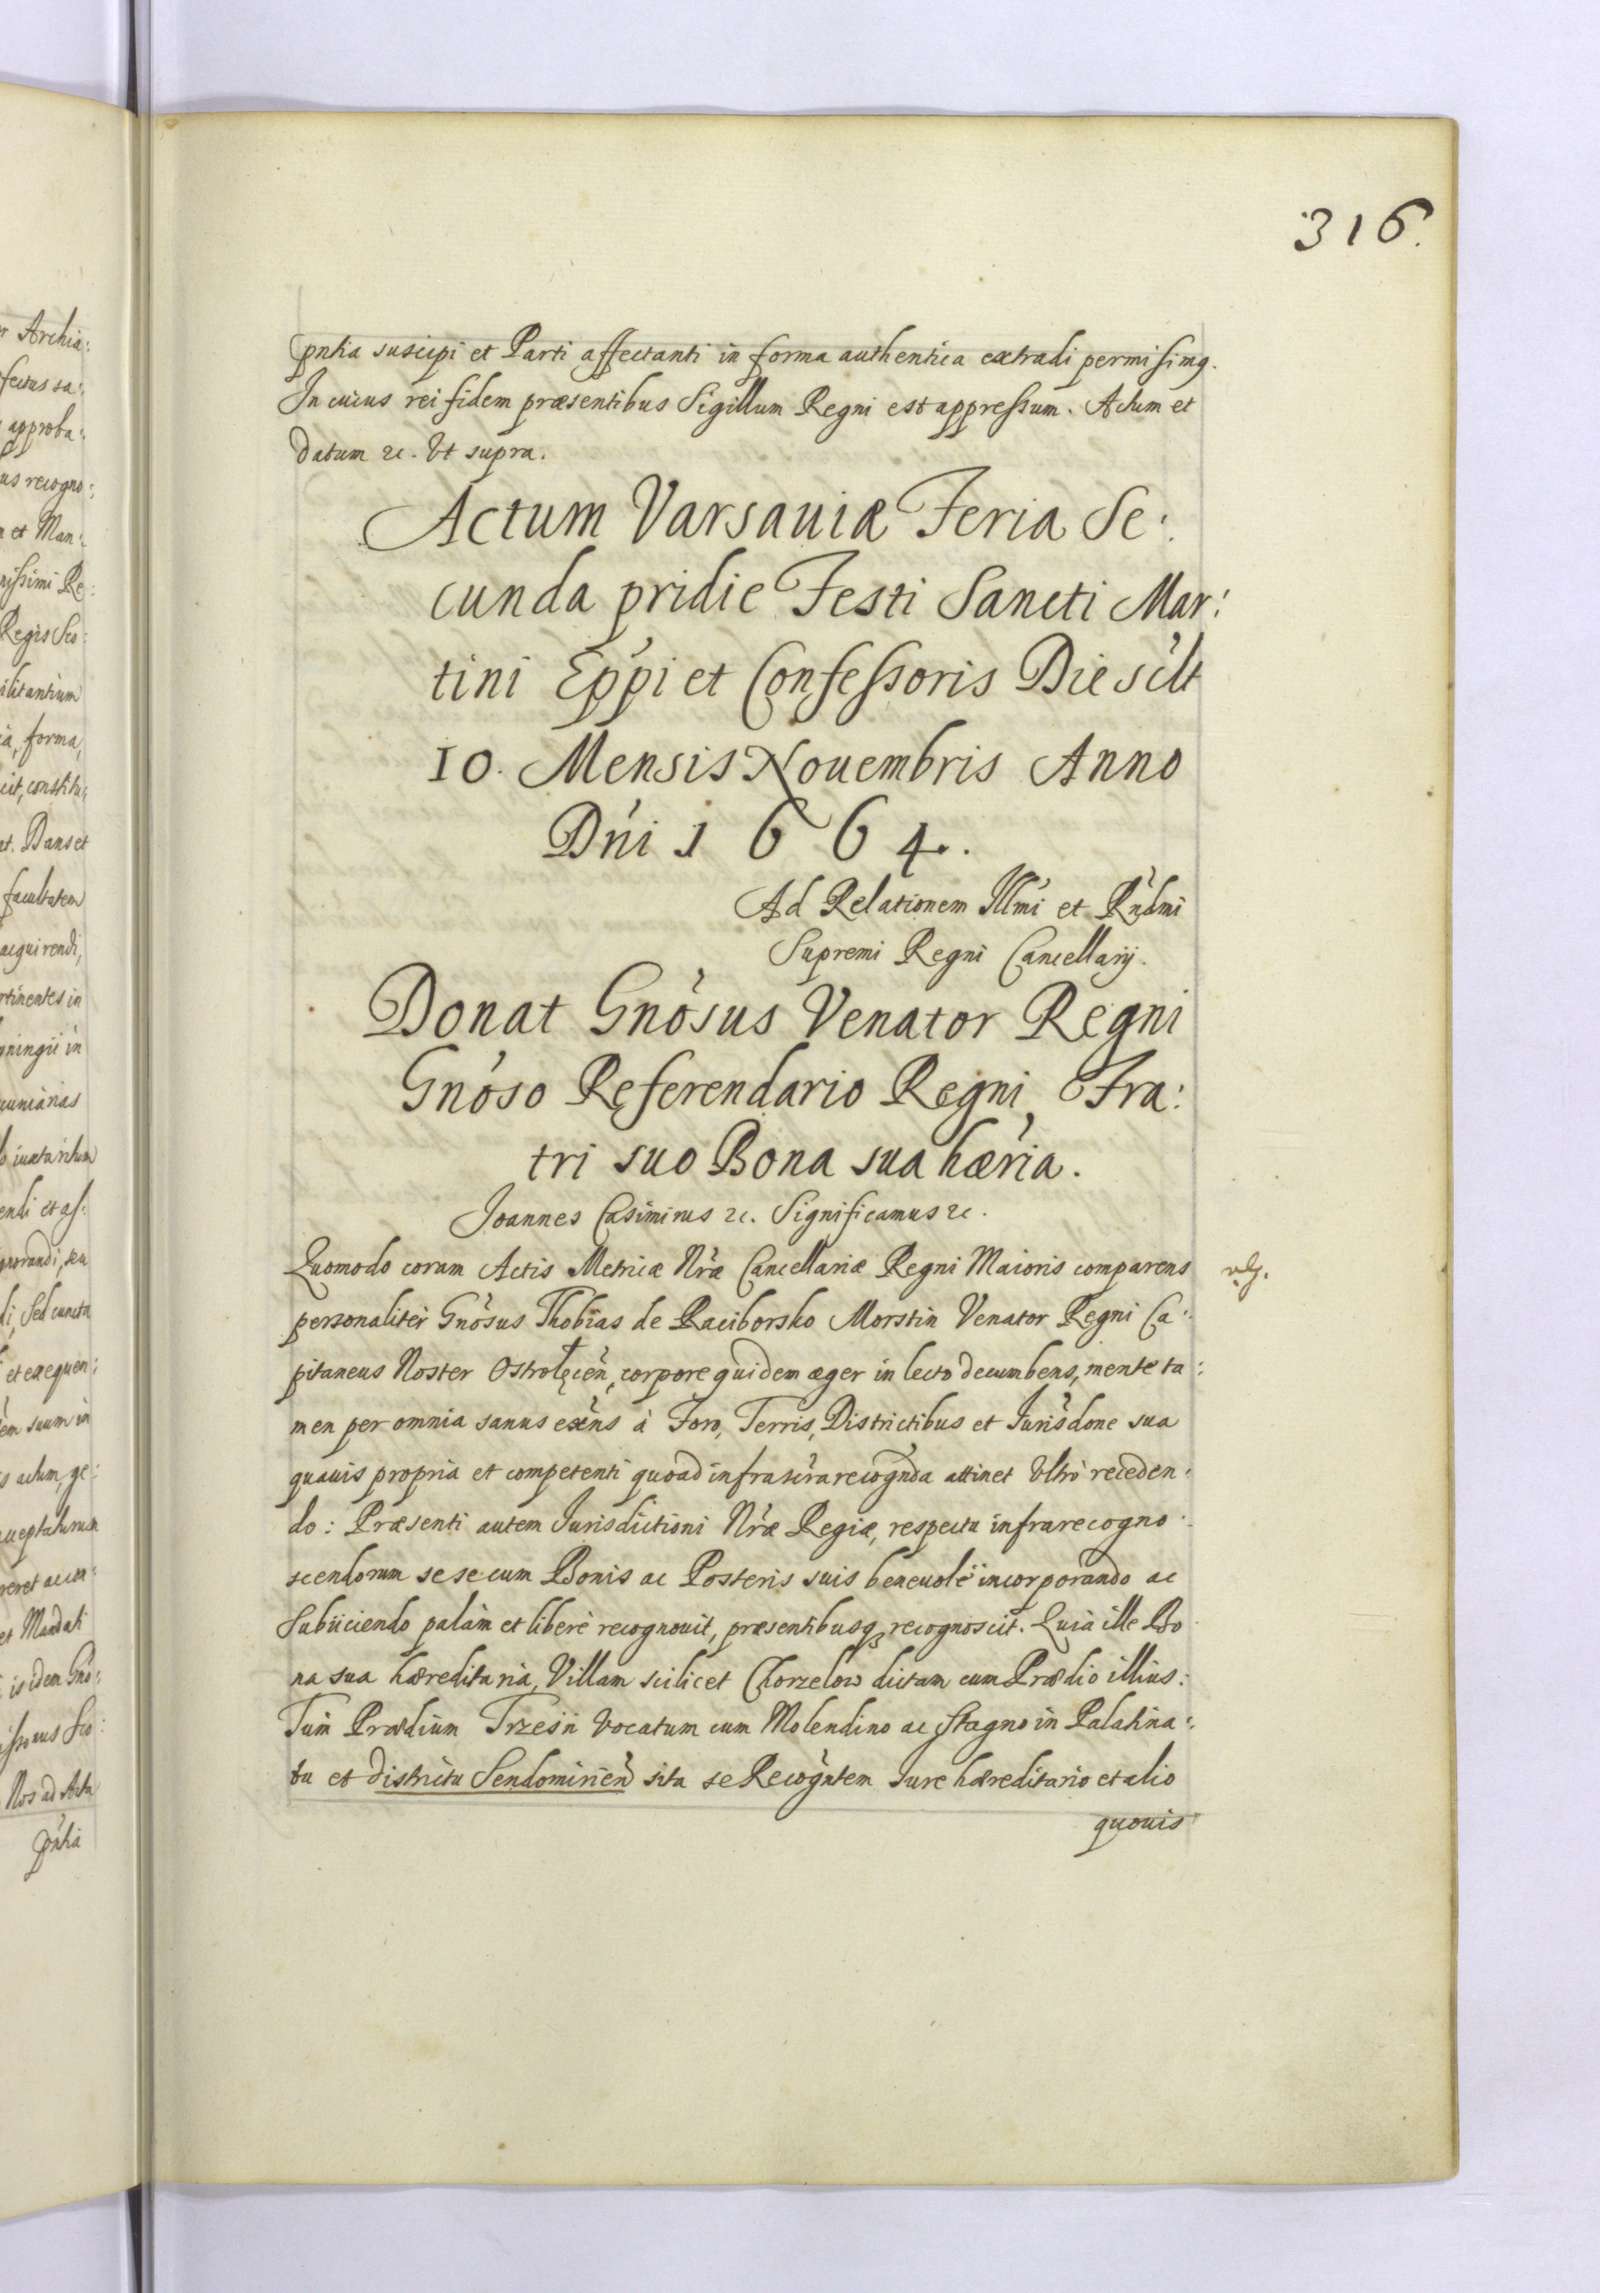 316.
pntia suscipi et Parti affectanti in forma authentica extradi permisimq.
In cuius rei fidem præsentibus Sigillum Regni est appressum. Actum et
datum &c. Ut supra.
Actum Varsauiæ Feria Se:
cunda pridie Festi Sancti Mar:
tini Eppi et Confessoris Die scilt
10. Mensis Nouembris Anno
Dni 1664.
Ad Relationem Illmi et Rndmi
Supremi Regni Cancellarij.
Donat Gnosus Venator Regni
Gnoso Referendario Regni, Fra:
tri suo Bona sua hæria.
Joannes Casimirus &c. Significamus &c.
Quomodo coram Actis Metricæ Nræ Cancellariæ Regni Maioris comparens
personaliter Gnosus Thobias de Raciborsko Morstin Venator Regni Ca:
pitaneus Noster Ostrołęcen, corpore quidem æger in lecto decumbens, mente ta:
men per omnia sanus exens à Foro, Terris, Districtibus et Jurisdone sua
quauis propria et competenti quoad infrascra recognda attinet Ultrò receden:
do: Præsenti autem Jurisdictioni Nræ Regiæ, respectu infrarecogno:
scendorum sese cum Bonis ac Posteris suis beneuolè incorporando ac
Subijciendo palàm et liberè recognouit, præsentibusq recognoscit. Quià ille Bo
na sua hæreditaria, Villam scilicet Chorzelow dictam cum Prædio illius:
Tum Prædium Trzesn Vocatum cum Molendino ac Stagno in Palatina:
tu et districtu Sendomirien sita se Recogntem Jure hæreditario et alio
quouis
Archia:
fectus sa:
approba:
us recogno:
et Man:
nissimi Re:
Regis Sco:
ilitantium
forma,
cit, constitu:
at. Dans et
facultatem
acquirendi,
rtinentes in
ningÿ in
cuniarias
iuxta ritum
endi et as:
gnorandi, seu
di, Sed cuncta
et exequen:
em suum in
actum, ge:
cceptaturum
et Mandati
is idem Gno:
Nos ad Acta
pntia